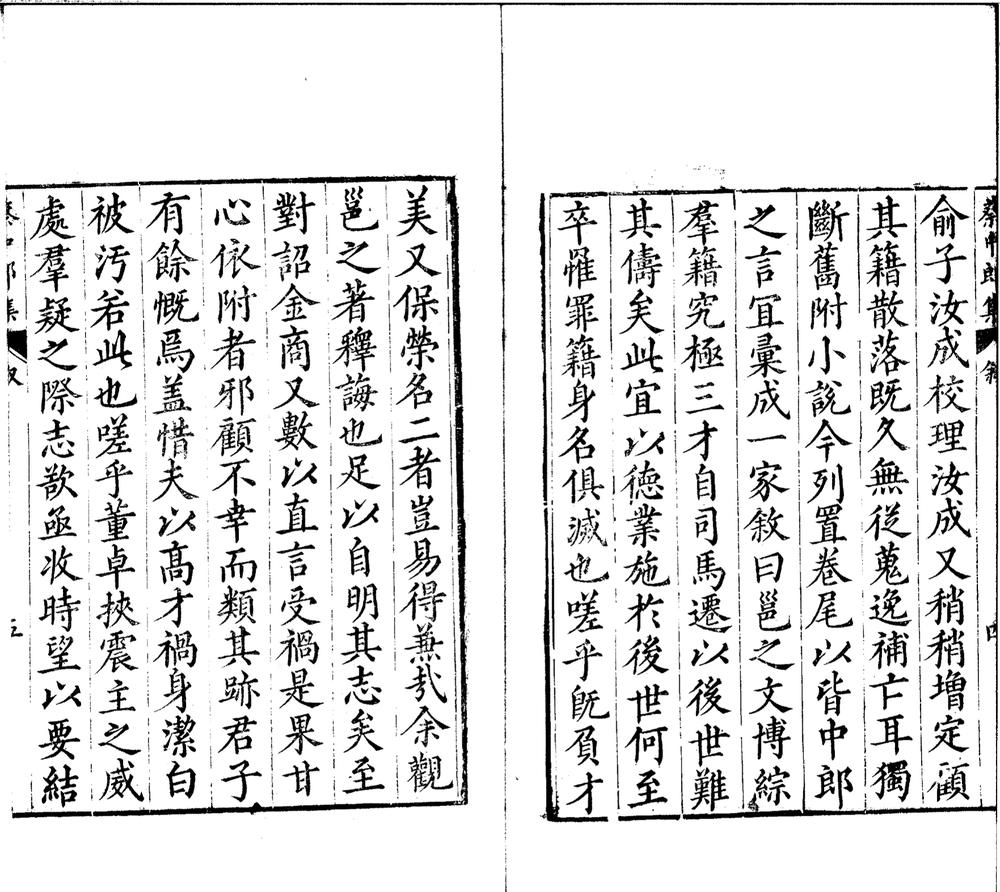 蔡中郎集 敘 四
俞子汝成校理汝成又稍稍增定顧
其籍散落既久無從蒐逸補亡耳獨
斷舊附小說今列置卷尾以皆中郎
之言冝彙成一家敘曰邕之文博綜
羣籍究極三才自司馬遷以後世難
其儔矣此宜以德業施於後世何至
卒罹罪籍身名俱滅也嗟乎旣負才
美又保榮名二者豈易得兼㢤余觀
邕之著釋誨也足以自明其志矣至
對詔金商又數以直言受禍是果甘
心依附者邪顧不幸而類其跡君子
有餘慨焉盖惜夫以髙才禍身潔白
被汚若此也嗟乎董卓挾震主之威
處羣疑之際志欲亟收時望以要結
蔡中郎集 敘 五